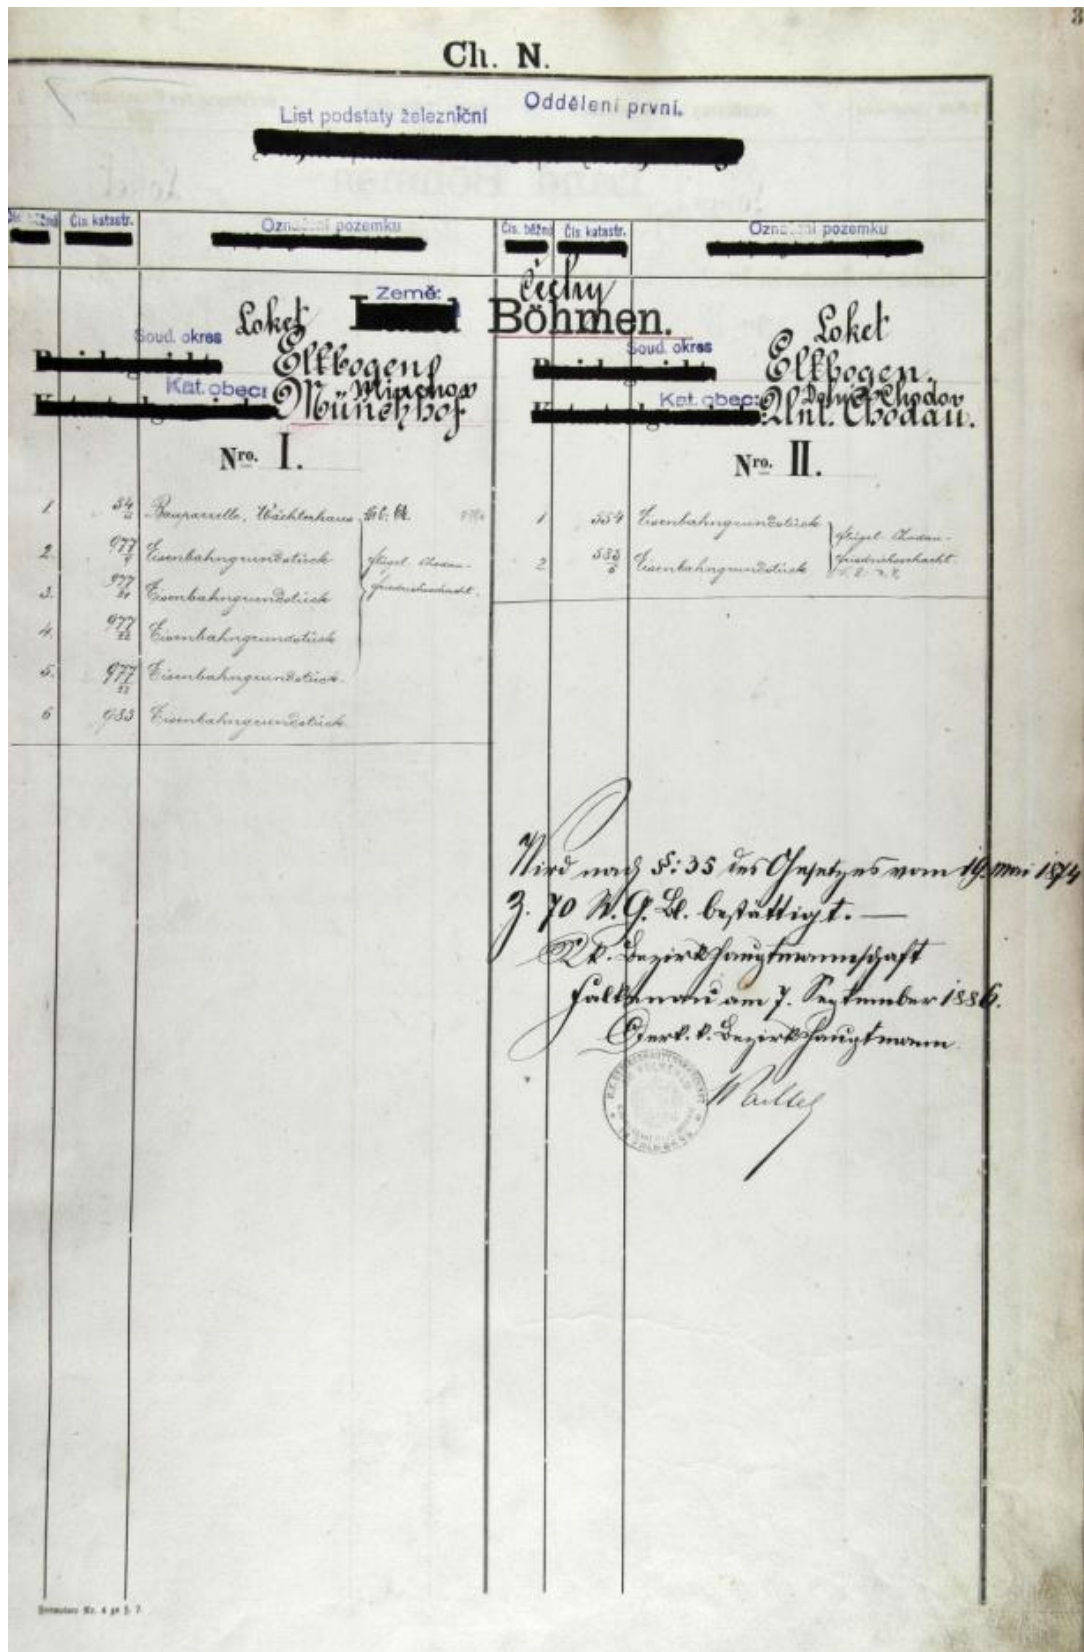 3
Ch. N.
List podstaty železniční Oddělení první.
Čís. běžné Čís. katastr. Označení pozemku Čís. běžné Čís. katastr. Označení pozemku
Země: Čechy
Böhmen.
Soud. okres Loket
Ellbogen
Kat. obec: Mnichov
Münchhof
Nro. I.
1 34 Bauparzelle, Wächterhaus
2. 977 Eisenbahngrundstück Flügel Chodau-
3. 977 Eisenbahngrundstück Friedrichschacht.
4. 977 Eisenbahngrundstück
5. 977 Eisenbahngrundstück.
6 983 Eisenbahngrundstück
Soud. okres Loket
Ellbogen.
Kat. obec: Dolní Chodov
Unt. Chodau.
Nro. II.
1 554 Eisenbahngrundstück Flügel Chodau-
2 583 Eisenbahngrundstück Friedrichschacht
Wird nach §: 35 des Gesetzes vom 19. Mai 1874
Z. 70 R. G. Bl. bestättigt. —
K. k. Bezirkshauptmannschaft
Falkenau am 7. September 1886.
Der k. k. Bezirkshauptmann
Formulare Nr. 4 zu §. 7.